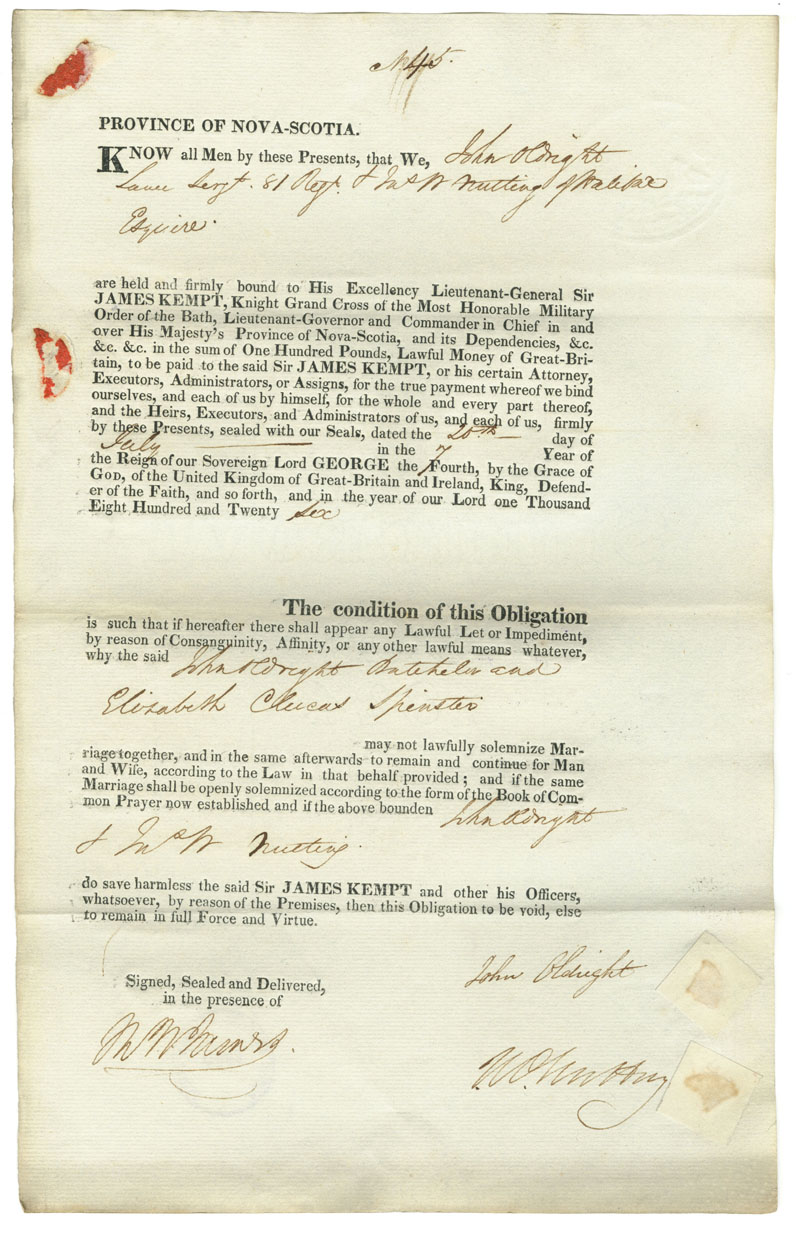 No 45.
PROVINCE OF NOVA-SCOTIA.
KNOW all Men by these Presents, that We, John Oldright
Sergt. 81 Regt. & Jas W Nutting of Halifax
Esquire.
are held and firmly bound to His Excellency Lieutenant-General Sir
JAMES KEMPT, Knight Grand Cross of the Most Honorable Military
Order of the Bath, Lieutenant-Governor and Commander in Chief in and
over His Majesty's Province of Nova-Scotia, and its Dependencies, &c.
&c. &c. in the sum of One Hundred Pounds, Lawful Money of Great-Bri-
tain, to be paid to the said Sir JAMES KEMPT, or his certain Attorney,
Executors, Administrators, or Assigns, for the true payment whereof we bind
ourselves, and each of us by himself, for the whole and every part thereof,
and the Heirs, Executors, and Administrators of us, and each of us, firmly
by these Presents, sealed with our Seals, dated the 20th day of
July in the 7 Year of
the Reign of our Sovereign Lord GEORGE the Fourth, by the Grace of
GOD, of the United Kingdom of Great-Britain and Ireland, King, Defend-
er of the Faith, and so forth, and in the year of our Lord one Thousand
Eight Hundred and Twenty Six
The condition of this Obligation
is such that if hereafter there shall appear any Lawful Let or Impediment,
by reason of Consanguinity, Affinity, or any other lawful means whatever,
why the said John Oldright Batchelor and
Elizabeth Clucas Spinster
may not lawfully solemnize Mar-
riage together, and in the same afterwards to remain and continue for Man
and Wife, according to the Law in that behalf provided; and if the same
Marriage shall be openly solemnized according to the form of the Book of Com-
mon Prayer now established and if the above bounden John Oldright
& Jas W Nutting.
do save harmless the said Sir JAMES KEMPT and other his Officers,
whatsoever, by reason of the Premises, then this Obligation to be void, else
to remain in full Force and Virtue.
Signed, Sealed and Delivered,
in the presence of
John Oldright
Nutting